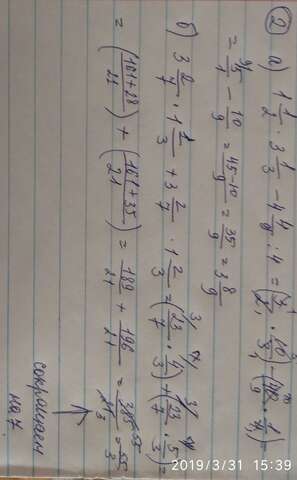 ② а) 1 1/2 · 3 1/3 - 4 4/9 : 4 = (3/2 · 10/3) - (40/9 · 1/4) =
= 5/1 - 10/9 = 45-10/9 = 35/9 = 3 8/9
б) 3 2/7 · 1 1/3 + 3 2/7 · 1 2/3 = (23/7 · 4/3) + (23/7 · 5/3) =
= (161+28/21) + (161+35/21) = 189/21 + 196/21 = 385/21 = 55/3
сокращаем
на 7
2019/3/31 15:39